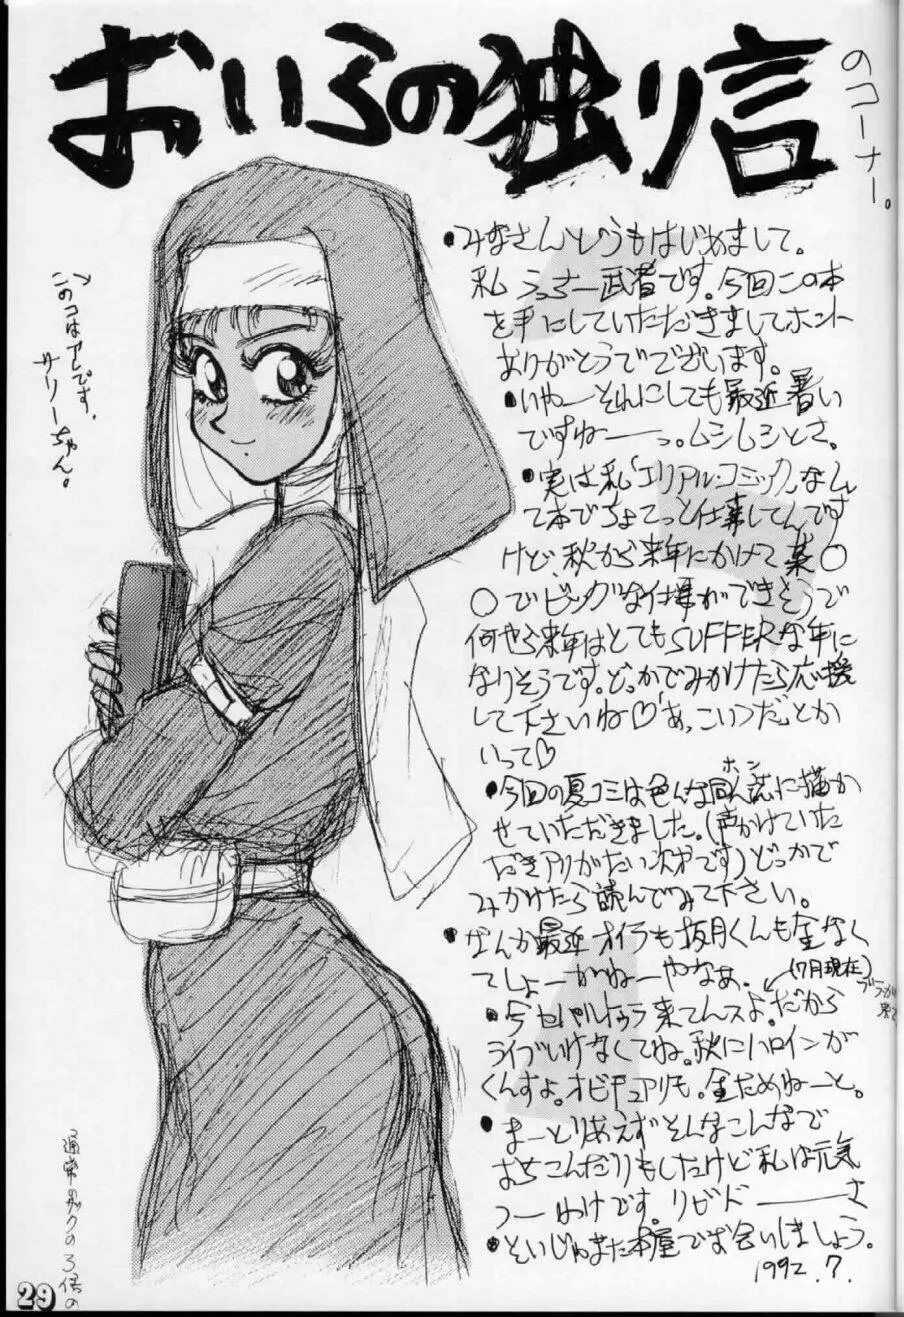 おいらの独り言
のコーナー。
このコはアレです、
サリーちゃん。
•みなさんどうもはじめまして。
私 うっちー武者です。今回この本
を手にしていただきましてホント
ありがとうでございます。
•いやーそれにしても最近暑い
ですねーーっ。ムシムシとさ。
•実は私「エリアルコミック」なん
て本でちょてっと仕事してんです
けど、秋から来年にかけて某〇
〇でビッグな仕事ができそうで
何やら来年はとてもSUFFERな年に
なりそうです。どっかでみかけたら応援
して下さいね♡「あ、こいつだ」とか
いって♡
•今回の夏コミは色んな同人誌に描か
ホン
せていただきました。(声かけていた
だきアリがたい次オです)どっかで
みかけたら読んでみて下さい。
•なんか最近オイラも坂月くんも金なく
てしょーがねーやなあ.
(7月現在)
•今セパルトゥラ来てんスよ。だから
ライブいけなくてね。秋にハロインが
くんすよ。オビチュアリも。金ためねーと。
•まーとりあえずそんなこんなで
おちこんだりもしたけど私は元気
つーわけです。リビドーーーさ
•そいじゃまた本屋でお会いしましょう。
1992.7.
通常のザクの3倍の
29